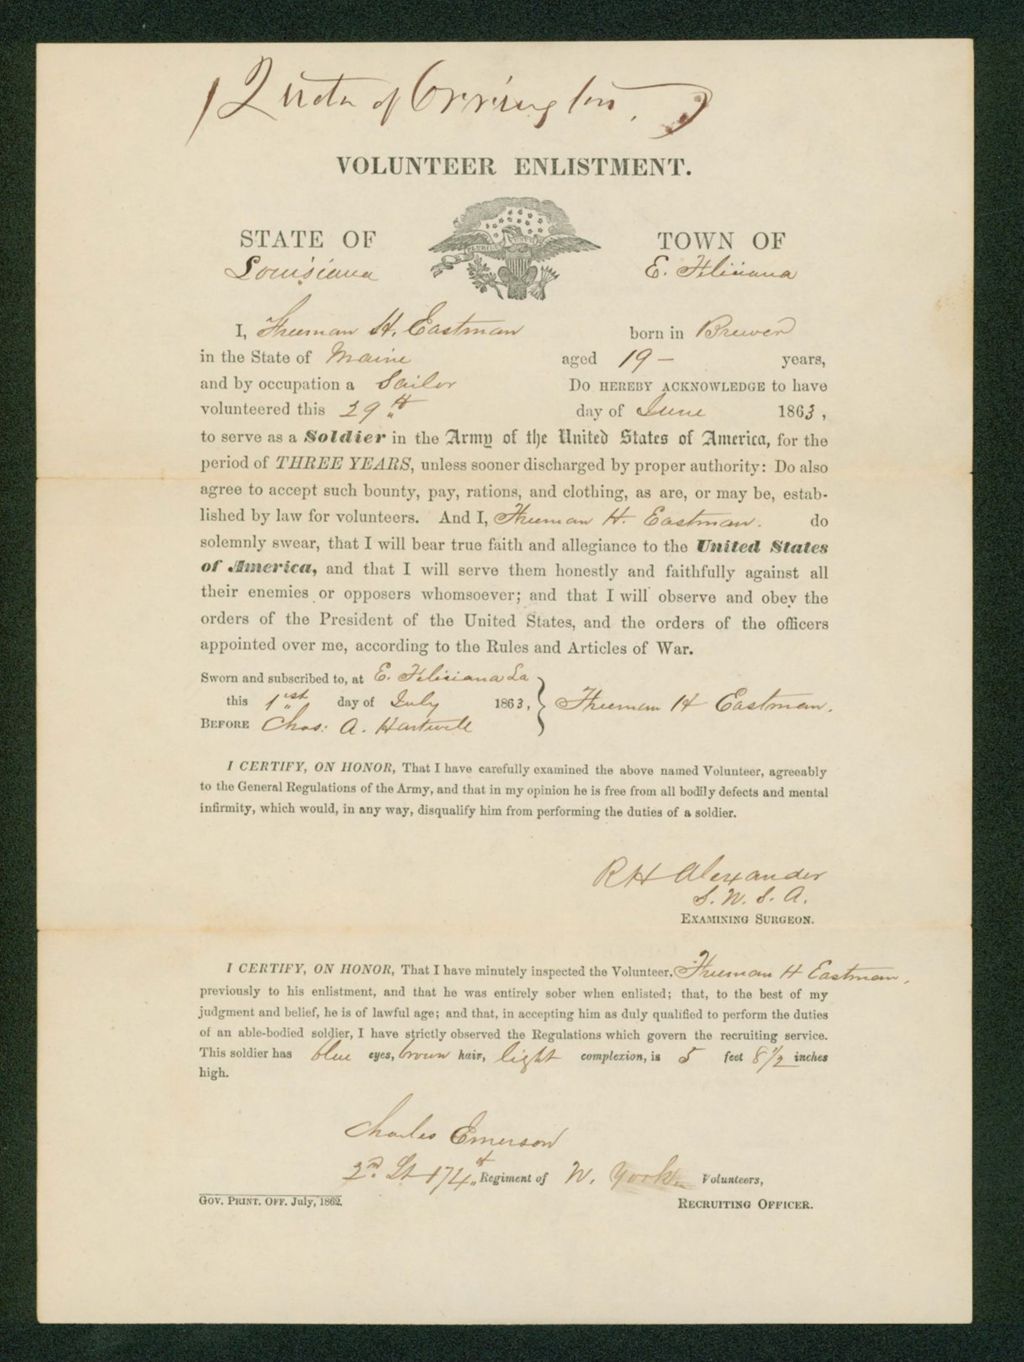 (Quota of Orrington.)
VOLUNTEER ENLISTMENT.
STATE OF TOWN OF
Louisiana E. Feliciana
I, Freeman H. Eastman born in Brewer
in the State of Maine aged 19 – years,
and by occupation a Sailor Do HEREBY ACKNOWLEDGE to have
volunteered this 29th day of June 1863,
to serve as a Soldier in the Army of the United States of America, for the
period of THREE YEARS, unless sooner discharged by proper authority: Do also
agree to accept such bounty, pay, rations, and clothing, as are, or may be, estab-
lished by law for volunteers. And I, Freeman H. Eastman. do
solemnly swear, that I will bear true faith and allegiance to the United States
of America, and that I will serve them honestly and faithfully against all
their enemies or opposers whomsoever; and that I will observe and obey the
orders of the President of the United States, and the orders of the officers
appointed over me, according to the Rules and Articles of War.
Sworn and subscribed to, at E. Feliciana La
this 1st day of July 1863, Freeman H Eastman.
BEFORE Chas. A. Hartwell
I CERTIFY, ON HONOR, That I have carefully examined the above named Volunteer, agreeably
to the General Regulations of the Army, and that in my opinion he is free from all bodily defects and mental
infirmity, which would, in any way, disqualify him from performing the duties of a soldier.
R H Alexander
S. W. S. A.
EXAMINING SURGEON.
I CERTIFY, ON HONOR, That I have minutely inspected the Volunteer, Freeman H Eastman,
previously to his enlistment, and that he was entirely sober when enlisted; that, to the best of my
judgment and belief, he is of lawful age; and that, in accepting him as duly qualified to perform the duties
of an able-bodied soldier, I have strictly observed the Regulations which govern the recruiting service.
This soldier has blue eyes, brown hair, light complexion, is 5 feet 8 1/2 inches
high.
Charles Emerson
2d. Lt 174th Regiment of N. York Volunteers,
GOV. PRINT. OFF. July, 1862. RECRUITING OFFICER.